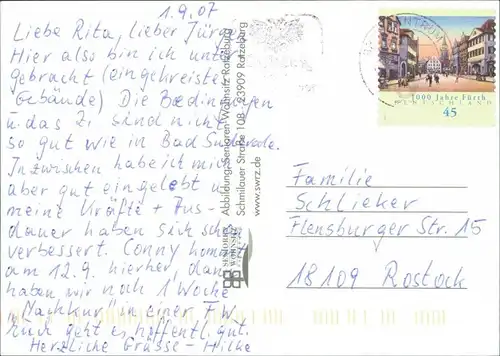 1.9.07
Liebe Rita, lieber Jürgen
Hier also bin ich unter
gebracht (eingekreiste
Gebäude) Die Bedingungen
u. das Z. sind nicht
so gut wie in Bad Suderode.
Inzwischen habe ich mich
aber gut eingelebt u.
meine Kräfte + Aus-
dauer haben sich schon
verbessert. Conny kommt
am 12.9. hierher, dann
haben wir noch 1 Woche
"Nachkur" in einer FW.
Euch geht es hoffentl. gut.
Herzliche Grüsse - Hilke
Abbildung: Senioren-Wohnsitz Ratzeburg
Schmilauer Straße 108 · 23909 Ratzeburg
www.swrz.de
SENIOREN
WOHNSITZ
1000 Jahre Fürth
DEUTSCHLAND
45
Familie
Schlieker
Flensburger Str. 15
18109 Rostock